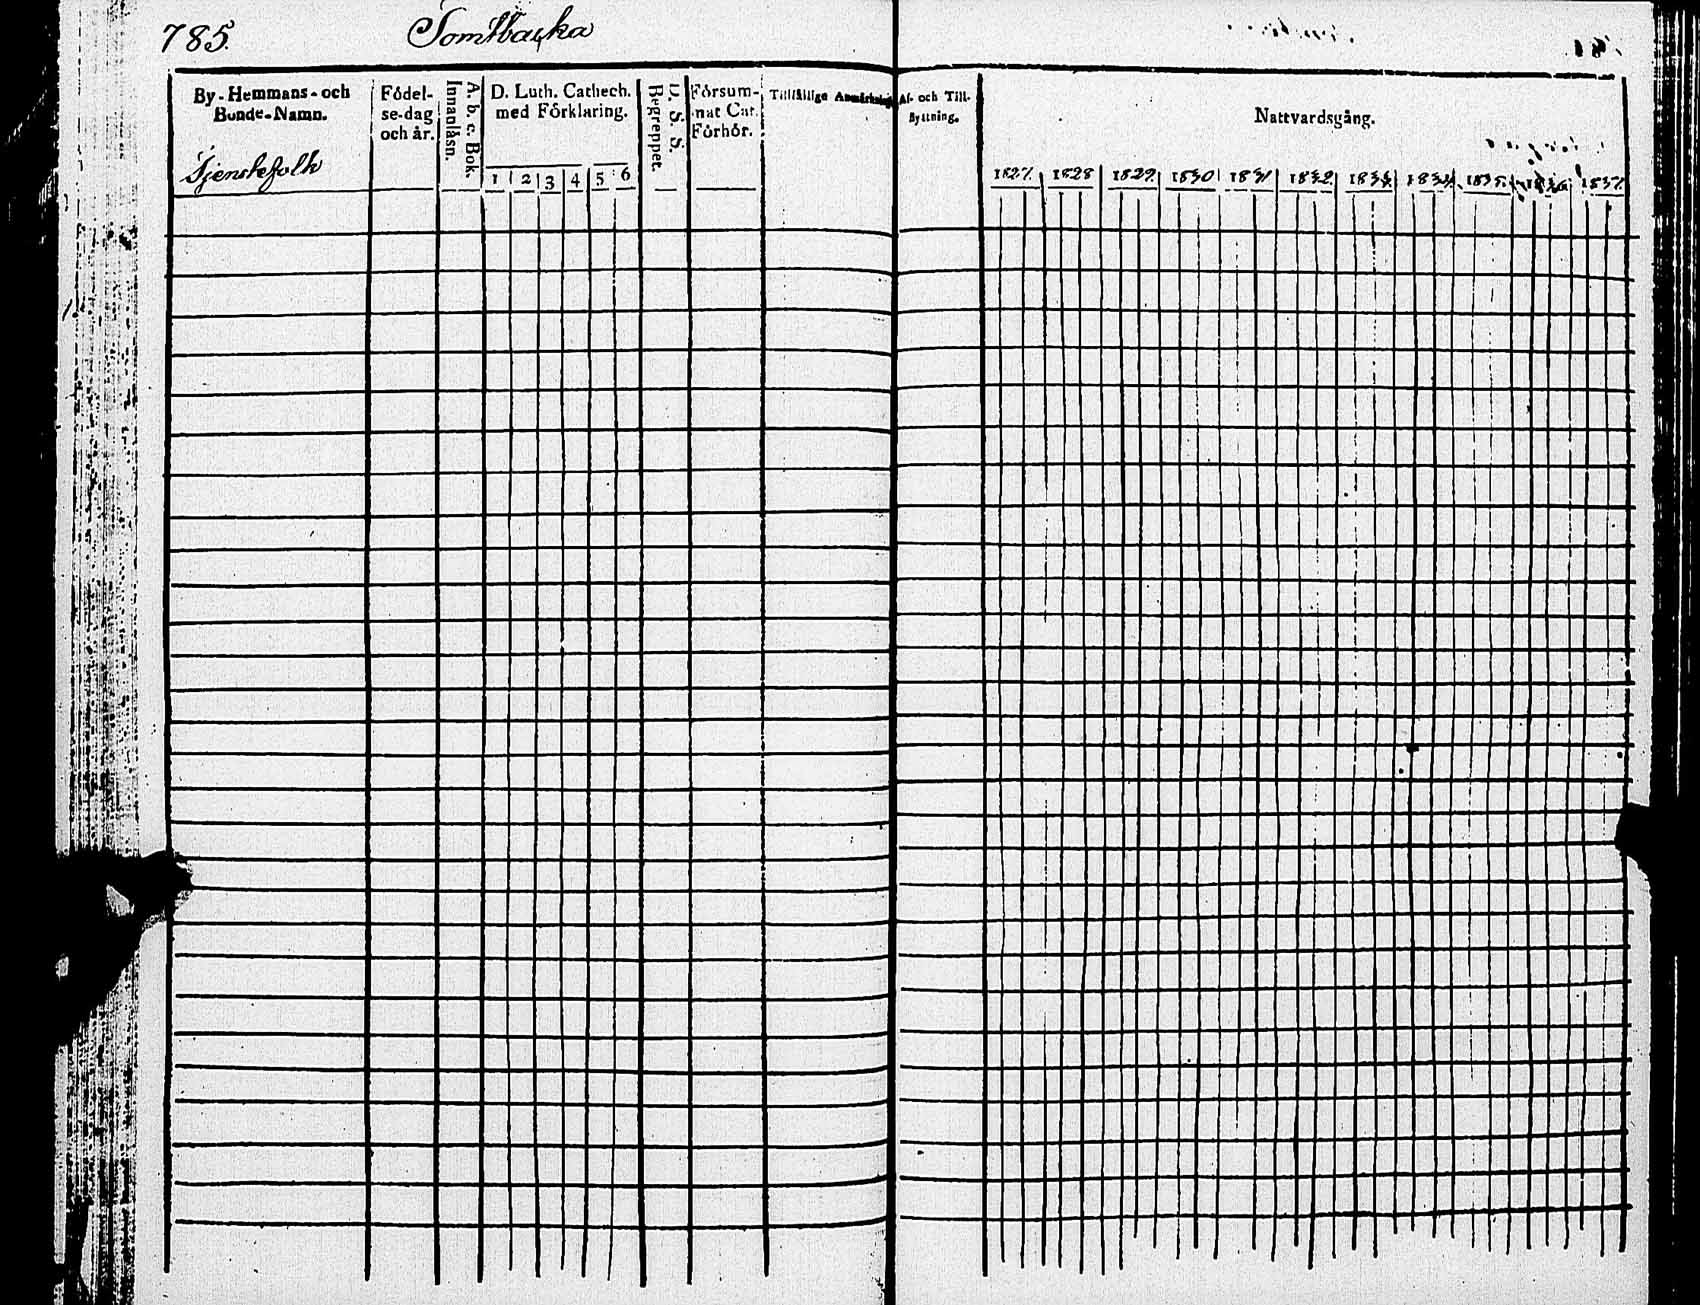 785.
Tomtbacka
By-Hemmans-och
Bonde-Namn.
Tjenstefolk
Födel-
se-dag
och år.
A. b. c. Bok.
Innanläsn.
D. Luth. Cathech.
med Förklaring.
1 2 3 4 5 6
D. S. S.
Begreppet.
Försum-
nat Cat.
Förhör.
Tillfällige Anmärkning
Af- och Till-
flyttning.
Nattvardsgång.
1827. 1828 1829. 1830 1831 1832. 1833. 1834. 1835. 1836. 1837.